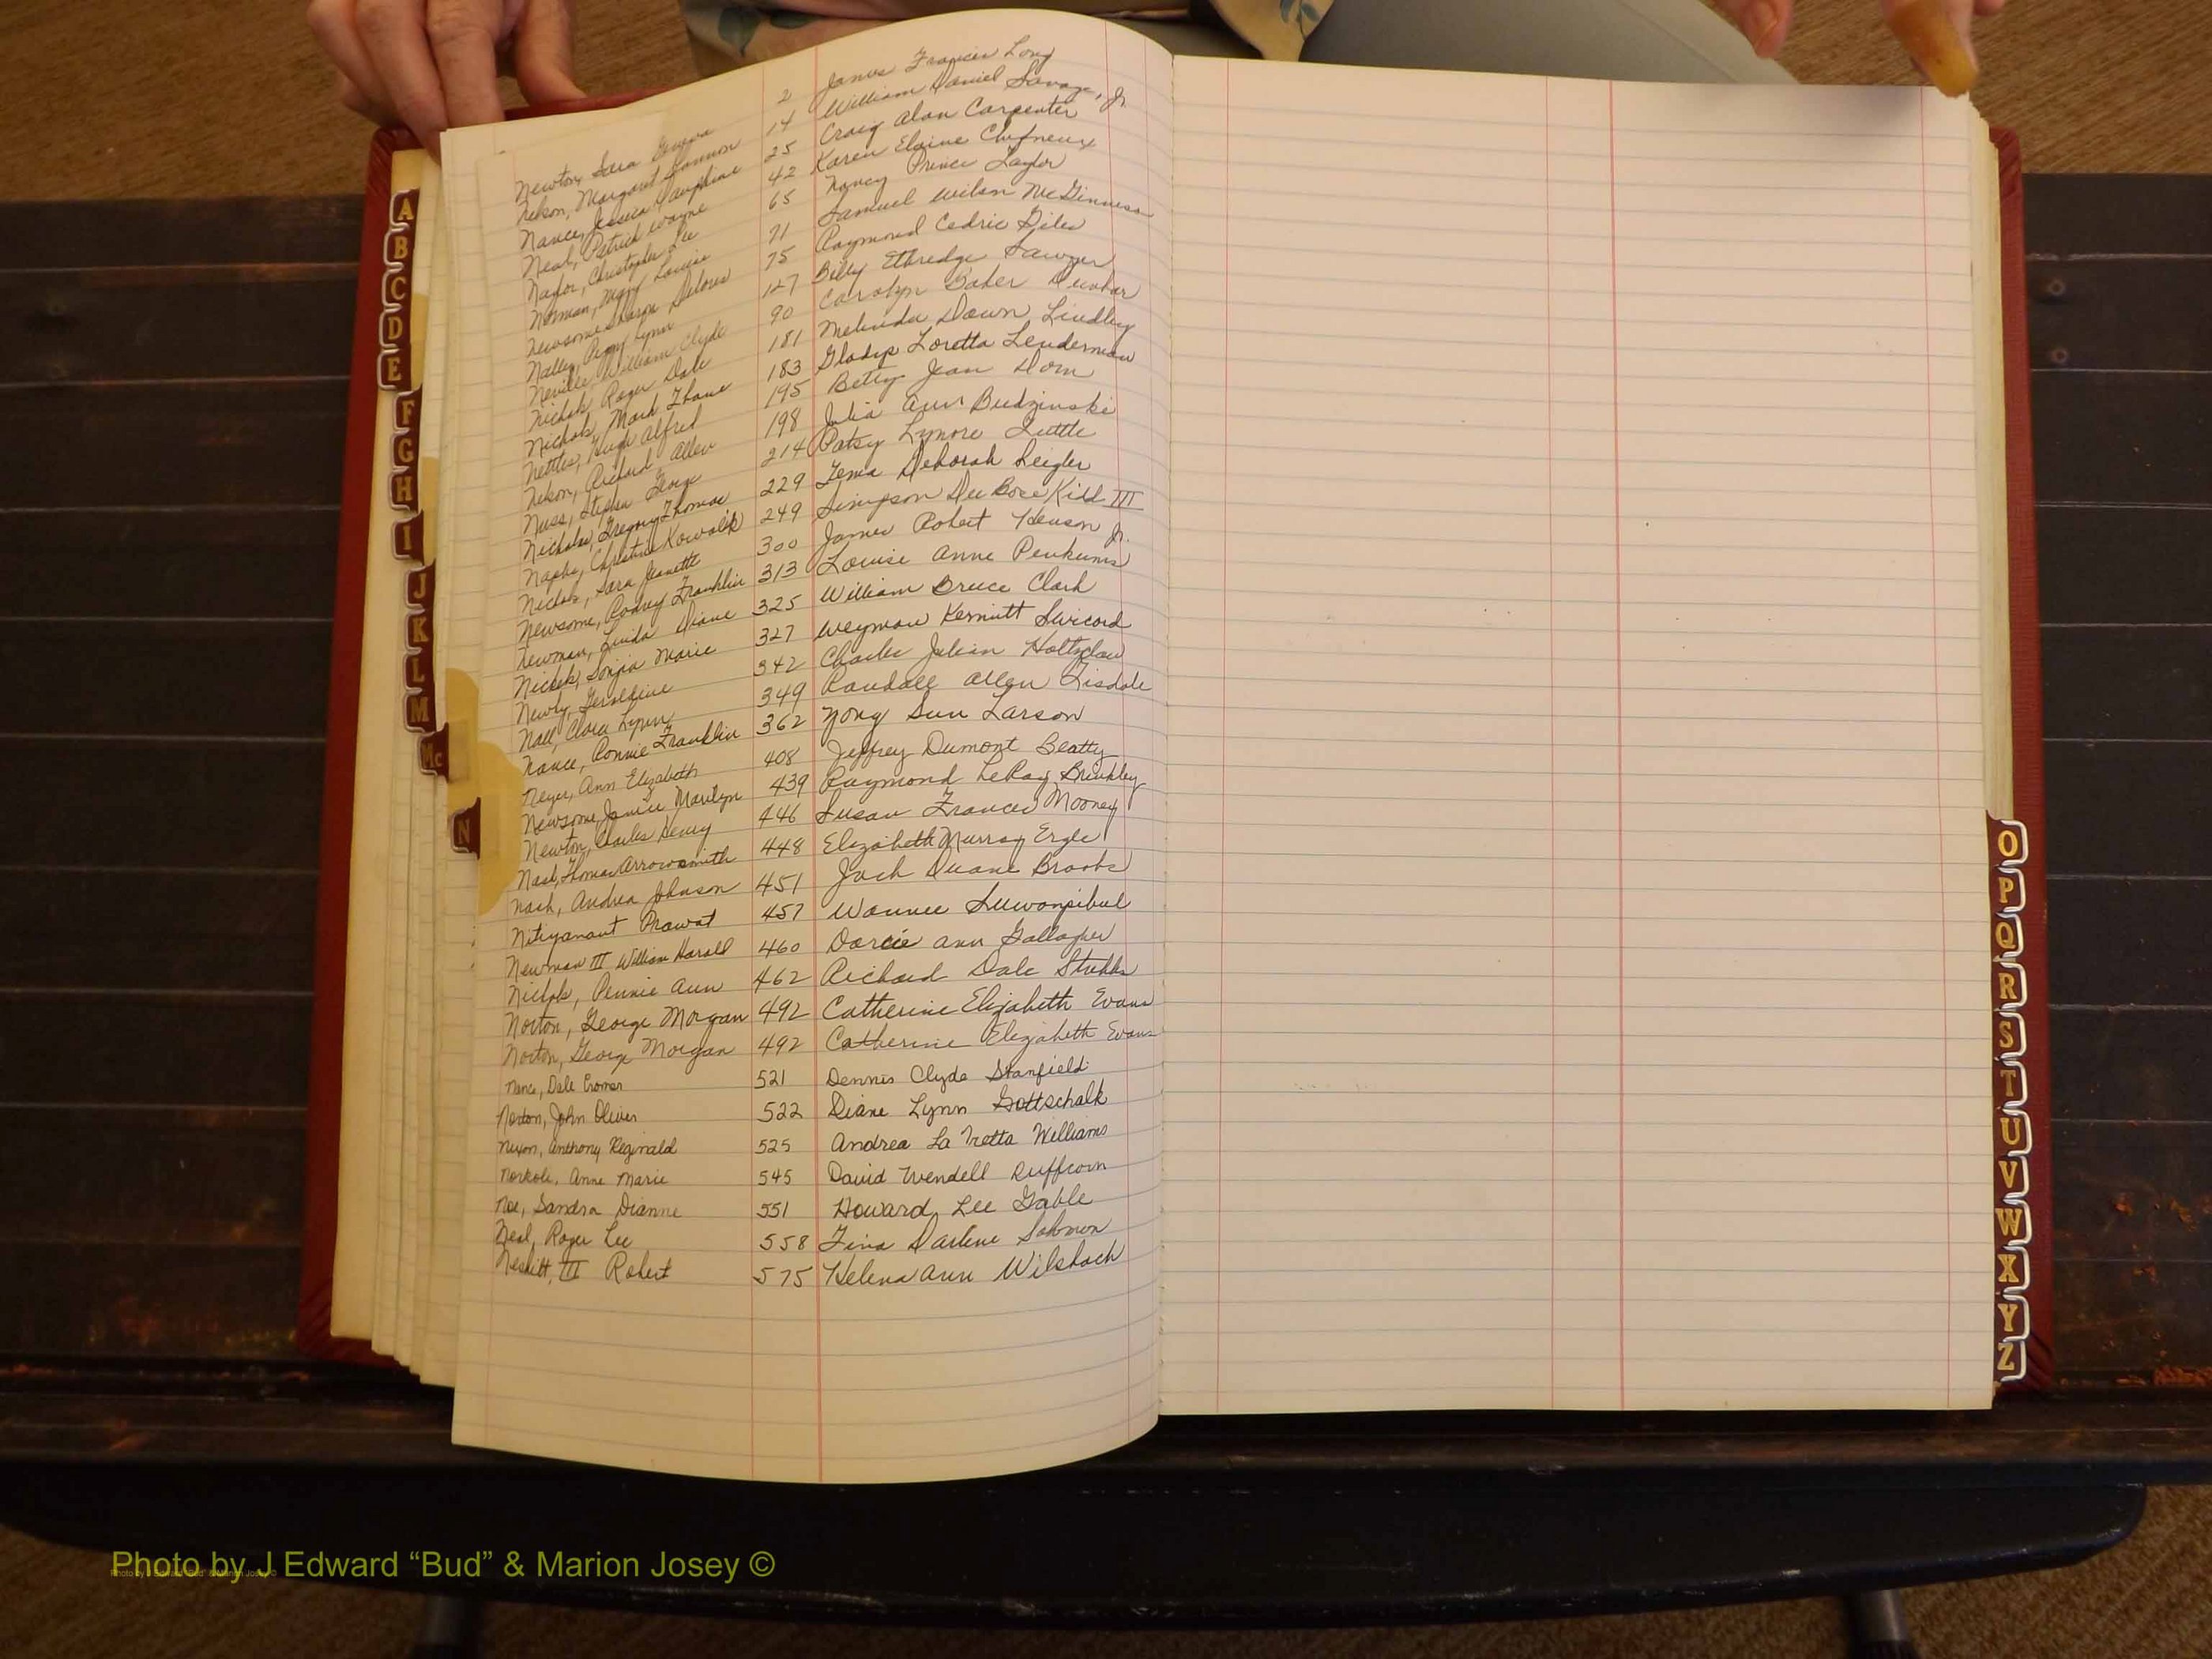 Newton, Sara Geneva 2 James Francis Long
Nelson, Margaret Cannon 14 William Daniel Savage, Jr.
Nance, Jessica Dauphine 25 Craig Alan Carpenter
Neal, Patrick Wayne 42 Karen Elaine Chifneux
Naylor, Christopher Lee 65 Nancy Prince Taylor
Norman, Mary Louise 71 Samuel Wilson McGinness
Newsome Sharon Delores 75 Raymond Cedric Giles
Nalley, Peggy Lynn 127 Billy Ethredge Sawyer
Neville, William Clyde 90 Carolyn Baker Dunbar
Nichols Roger Dale 181 Melinda Dawn Lindley
Nichols, Mark Thane 183 Gladys Loretta Lenderman
Nettles, Hugh Alfred 195 Betty Jean Dorn
Nelson, Richard Allen 198 Julia Ann Budzinski
Nuss, Stephen George 214 Patsy Lynore Tuttle
Nicholas, Gregory Thomas 229 Tema Deborah Leigler
Naphy, Christine Kowalik 249 Simpson DuBose Kidd III
Nichols, Sara Jeanette 300 James Robert Henson Jr.
Newsome, Rodney Franklin 313 Louise Anne Penkunis
Newman, Linda Diane 325 William Bruce Clark
Nichols, Sonjia Marie 327 Weyman Kermitt Swicord
Newly, Geraldine 342 Charles Julian Holtzclaw
Nall, Clara Lynn 349 Randall Allen Tisdale
Nance, Ronnie Franklin 362 Yong Sun Larson
Neyer, Ann Elizabeth 408 Jeffrey Dumont Beatty
Newsome Janice Marilyn 439 Raymond LeRoy Brinkley
Newton, Charles Henry 446 Susan Frances Mooney
Nash, Thomas Arrowsmith 448 Elizabeth Murray Ergle
Nash, Andrea Johnson 451 Jack Duane Brooks
Nitiyanant Prawat 457 Wannee Suwanpibul
Newman III William Harold 460 Darcie Ann Gallagher
Nichols, Pennie Ann 462 Richard Dale Stubbs
Norton, George Morgan 492 Catherine Elizabeth Evans
Norton, George Morgan 492 Catherine Elizabeth Evans
Nance, Dale Cromer 521 Dennis Clyde Stanfield
Norton, John Oliver 522 Diane Lynn Gottschalk
Nixon, Anthony Reginald 525 Andrea La Tretta Williams
Norkole, Anne Marie 545 David Wendell Ruffcorn
Noe, Sandra Dianne 551 Howard Lee Gable
Neal, Roger Lee 558 Tina Darlene Solomon
Nesbitt, III Robert 575 Helena Ann Wilsbach
A
B
C
D
E
F
G
H
I
J
K
L
M
Mc
N
O
P
Q
R
S
T
U
V
W
X
Y
Z
Photo by J Edward “Bud” & Marion Josey ©
Photo by J Edward "Bud" & Marion Josey ©